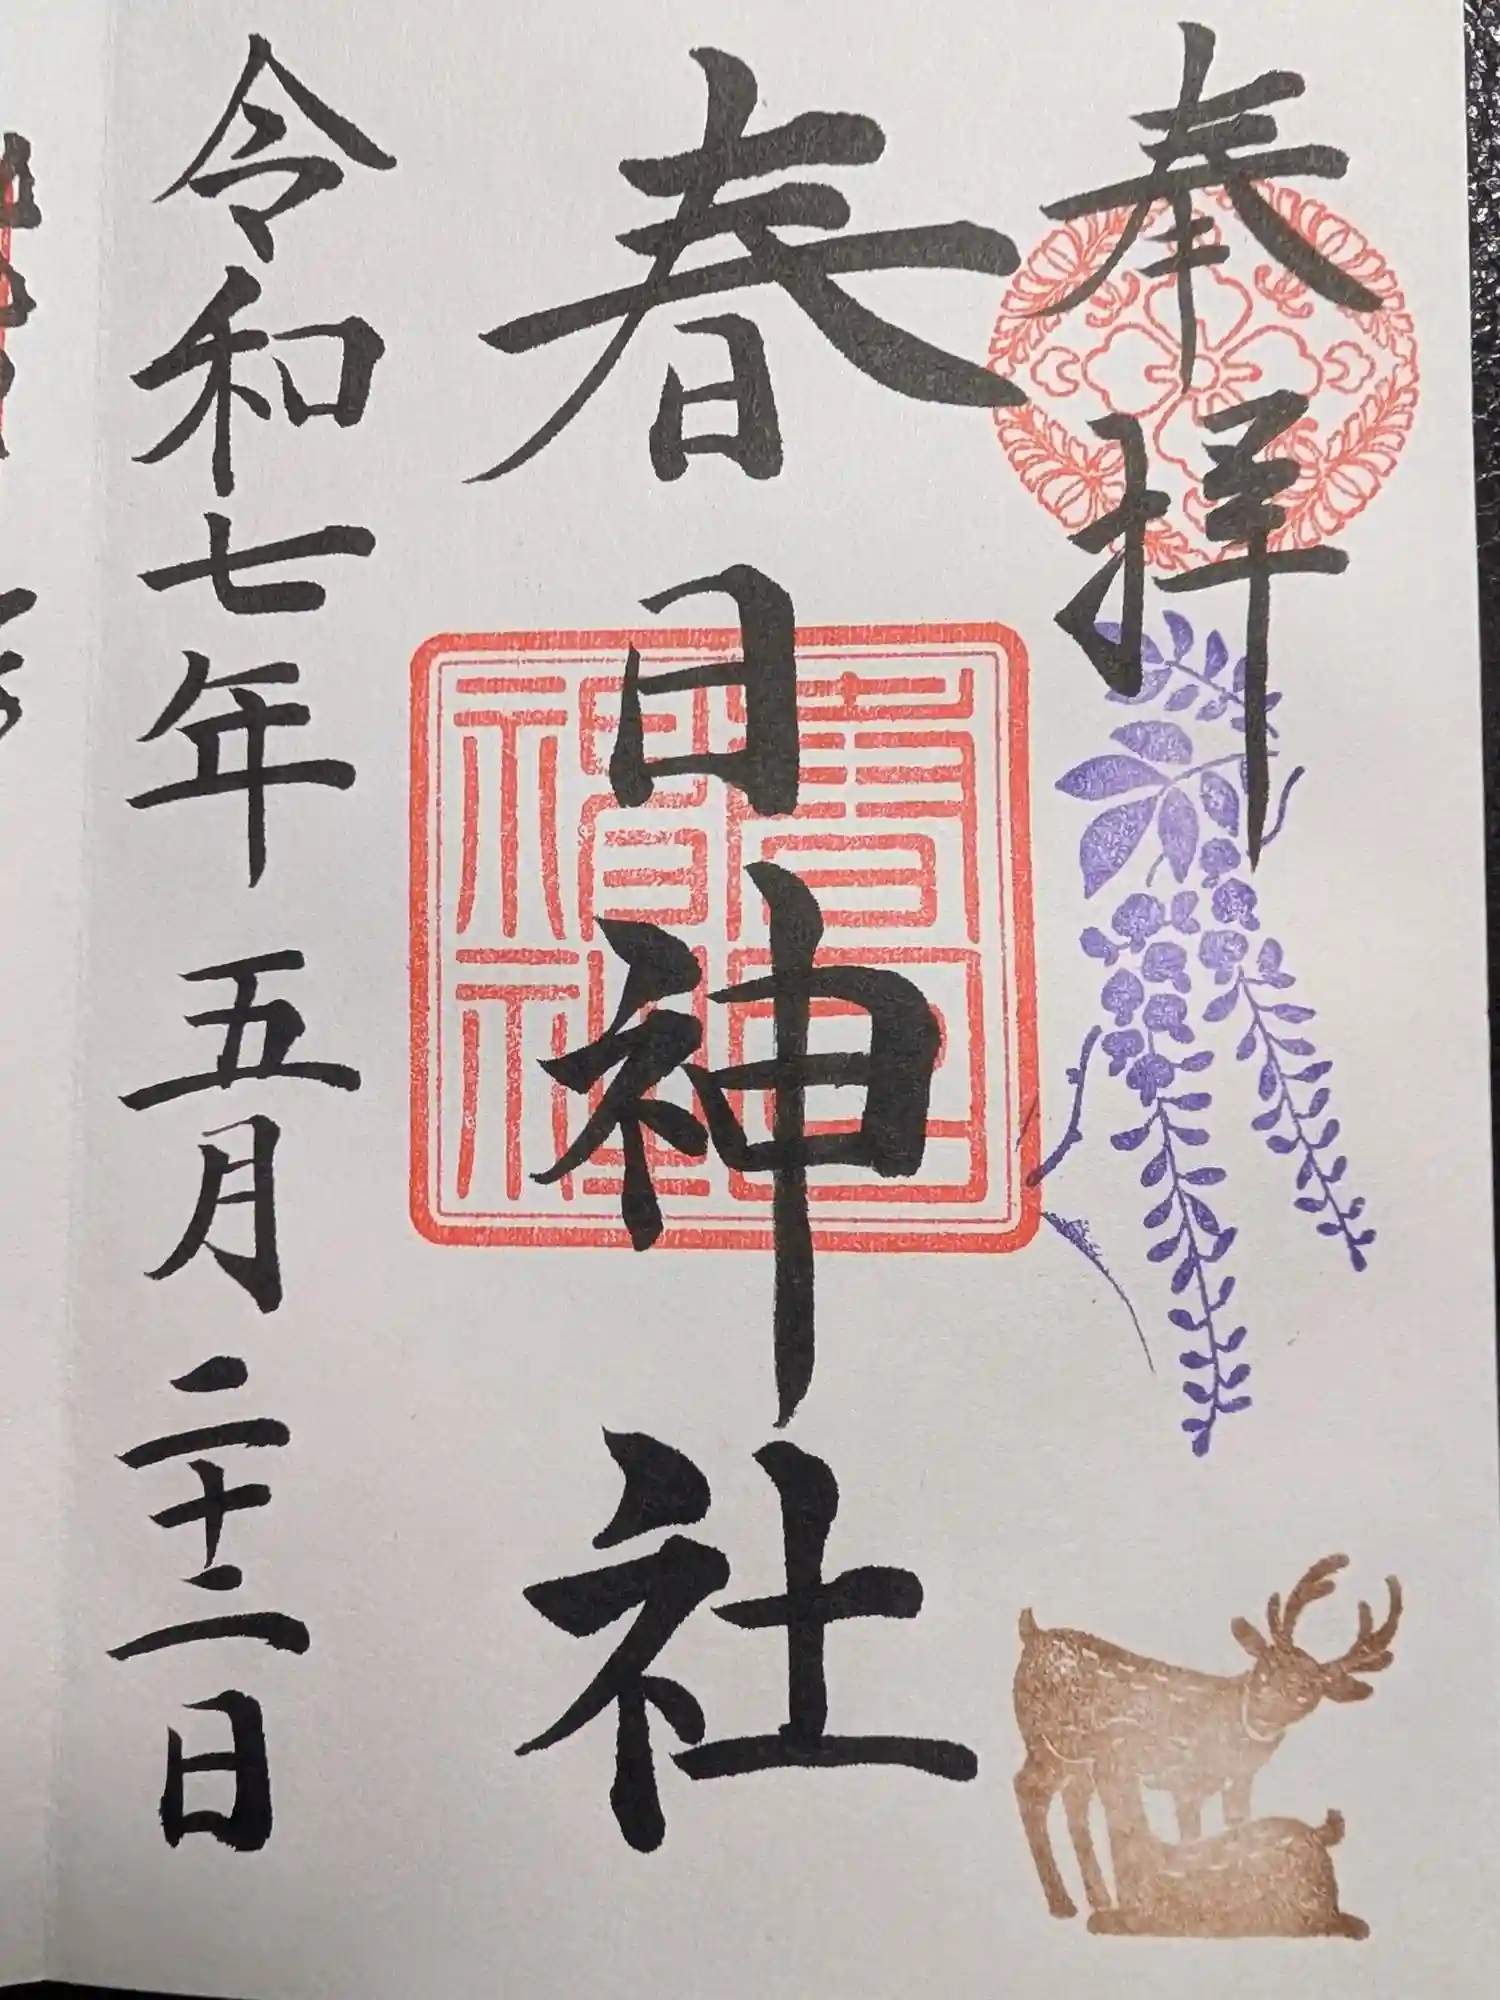 奉拝
春日神社
春日神社
令和七年 五月 二十二日